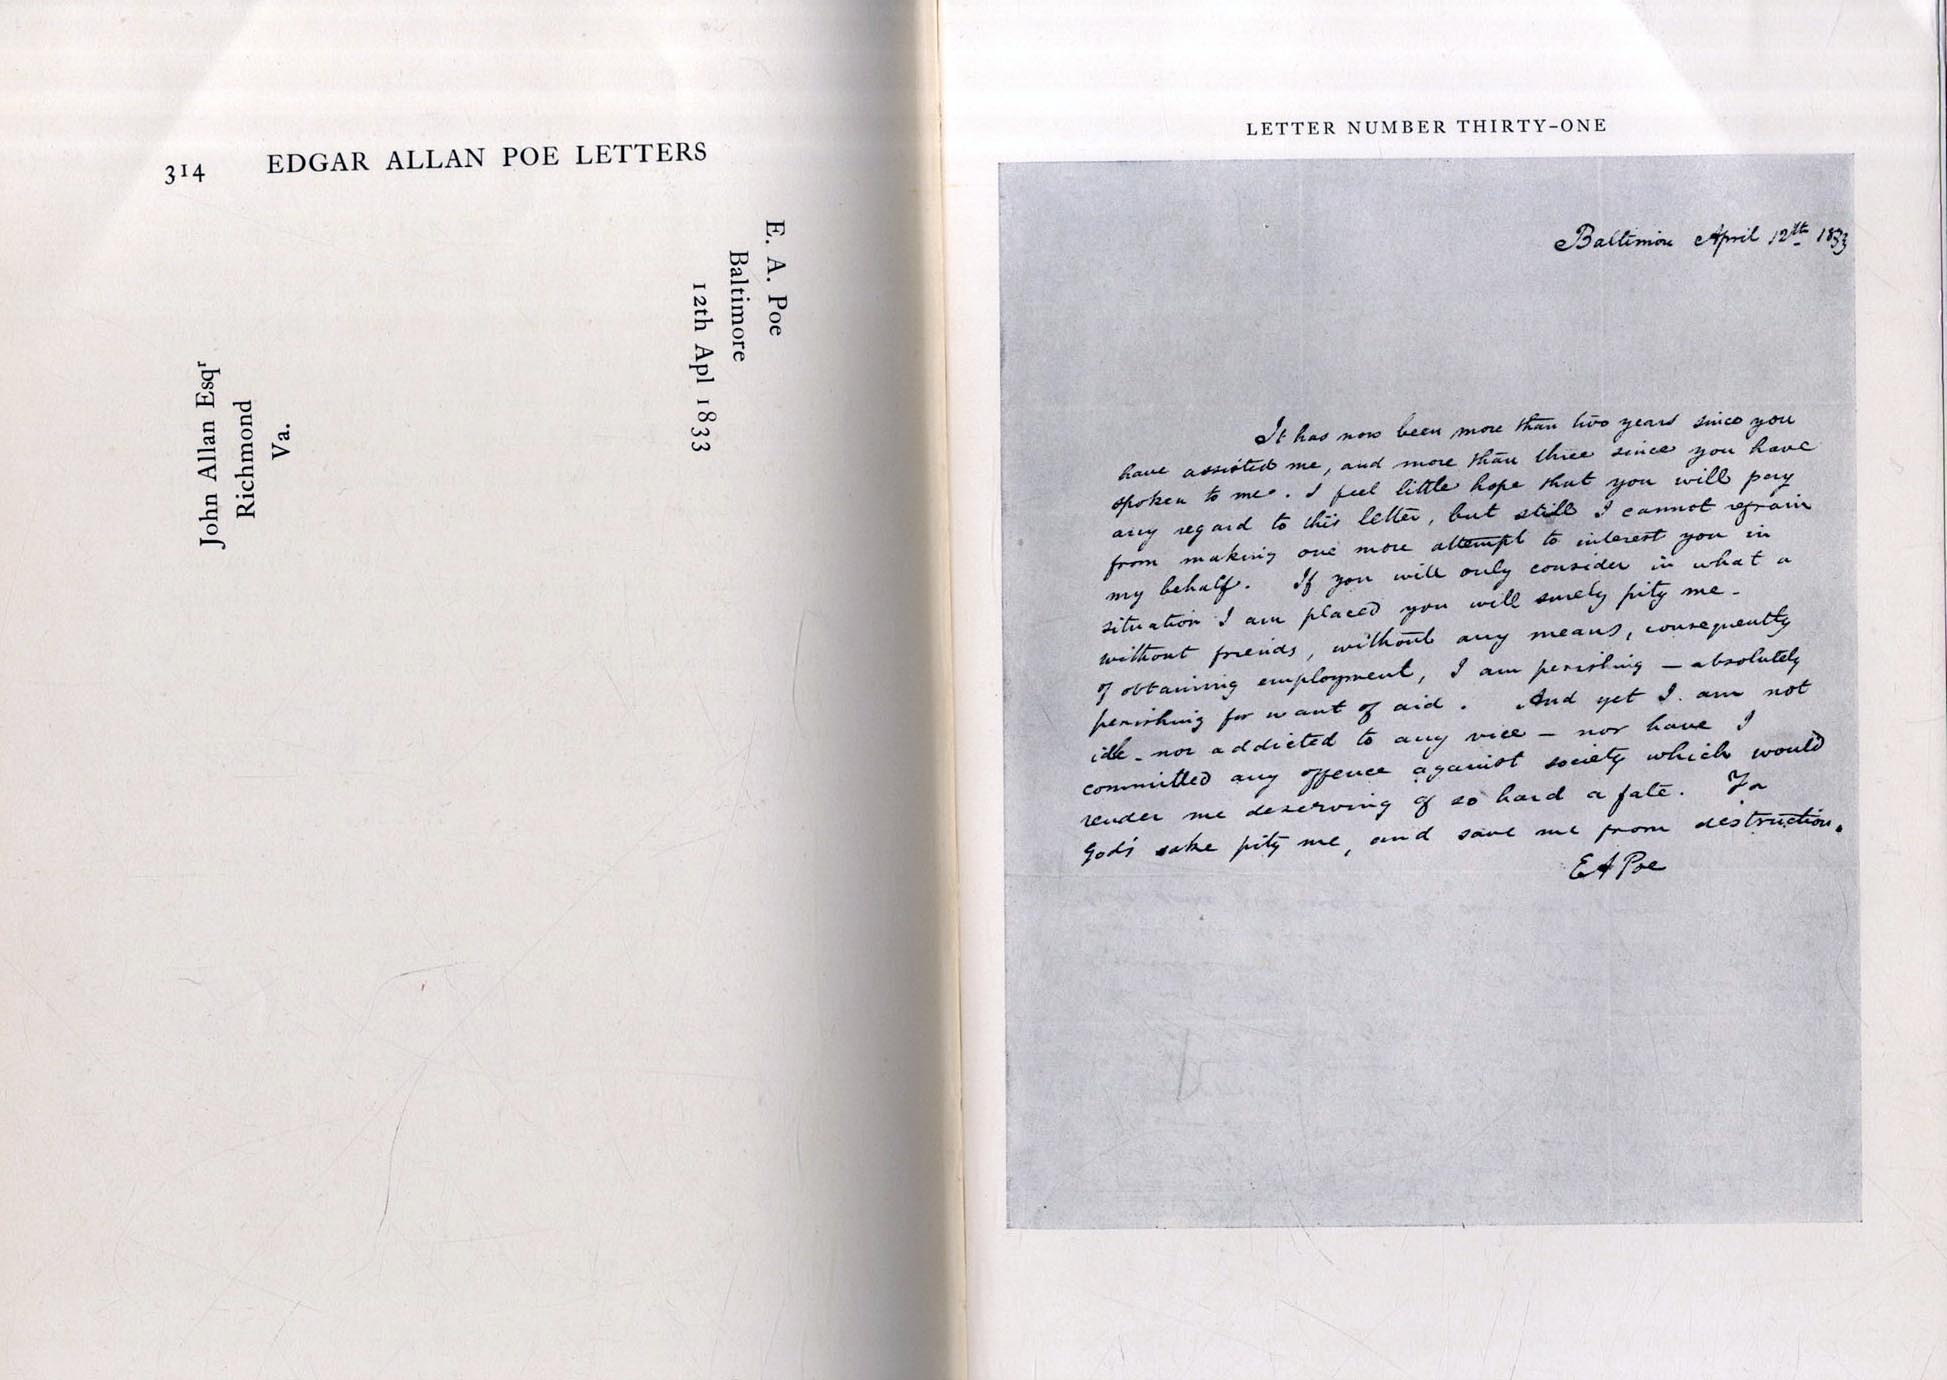 314 EDGAR ALLAN POE LETTERS
E. A. Poe
Baltimore
12th Apl 1833
John Allan Esqʳ
Richmond
Va.
LETTER NUMBER THIRTY-ONE
Baltimore April 12th 1833
It has now been more than two years since you
have assisted me, and more than three since you have
spoken to me. I feel little hope that you will pay
any regard to this letter, but still I cannot refrain
from making one more attempt to interest you in
my behalf. If you will only consider in what a
situation I am placed you will surely pity me -
without friends, without any means, consequently
of obtaining employment, I am perishing — absolutely
perishing for want of aid. And yet I am not
idle - nor addicted to any vice — nor have I
committed any offence against society which would
render me deserving of so hard a fate. For
God's sake pity me, and save me from destruction.
E A Poe